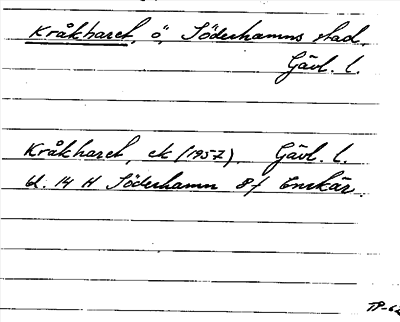 Kråkharet, ö, Söderhamns stad,
Gävl. l.
Kråkharet, ek (1957). Gävl. l.
bl. 14 H Söderhamn 8f Enskär.
TP-62